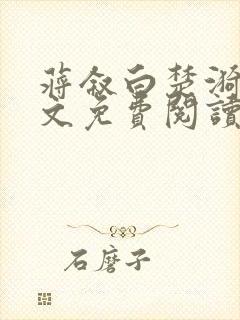 蔣叙白楚漪
文免費閱讀
石磨子